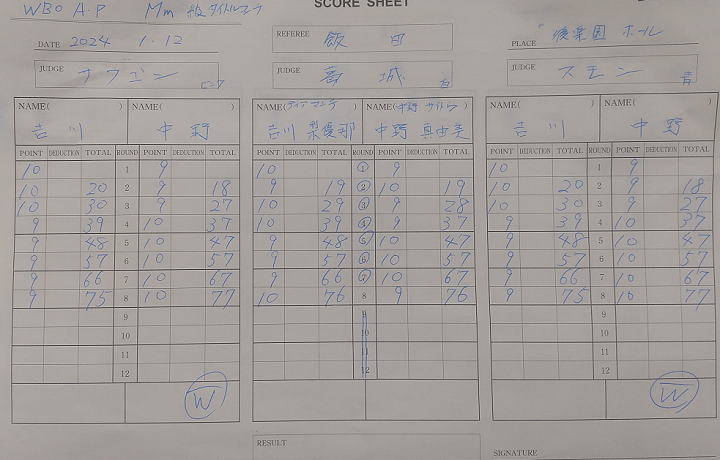 SCORE SHEET
WBO A.P Mm 級タイトルマッチ
DATE 2024 1.12
REFEREE 飯田
PLACE 後楽園ホール
JUDGE ナワゴン ピンク
JUDGE 葛城 白
JUDGE スモン 青
NAME( ) NAME( ) NAME( ) NAME(中野タイトル) NAME( ) NAME( )
吉川 中野 吉川梨優那 中野真由美 吉川 中野
POINT DEDUCTION TOTAL ROUND POINT DEDUCTION TOTAL POINT DEDUCTION TOTAL ROUND POINT DEDUCTION TOTAL POINT DEDUCTION TOTAL ROUND POINT DEDUCTION TOTAL
10 1 9 10 1 9 10 1 9
10 20 2 9 18 9 19 2 10 19 10 20 2 9 18
10 30 3 9 27 10 29 3 9 28 10 30 3 9 27
9 39 4 10 37 10 39 4 9 37 9 39 4 10 37
9 48 5 10 47 9 48 5 10 47 9 48 5 10 47
9 57 6 10 57 9 57 6 10 57 9 57 6 10 57
9 66 7 10 67 9 66 7 10 67 9 66 7 10 67
9 75 8 10 77 10 76 8 9 76 9 75 8 10 77
9 9 9
10 10 10
11 11 11
12 12 12
W W
RESULT
SIGNATURE